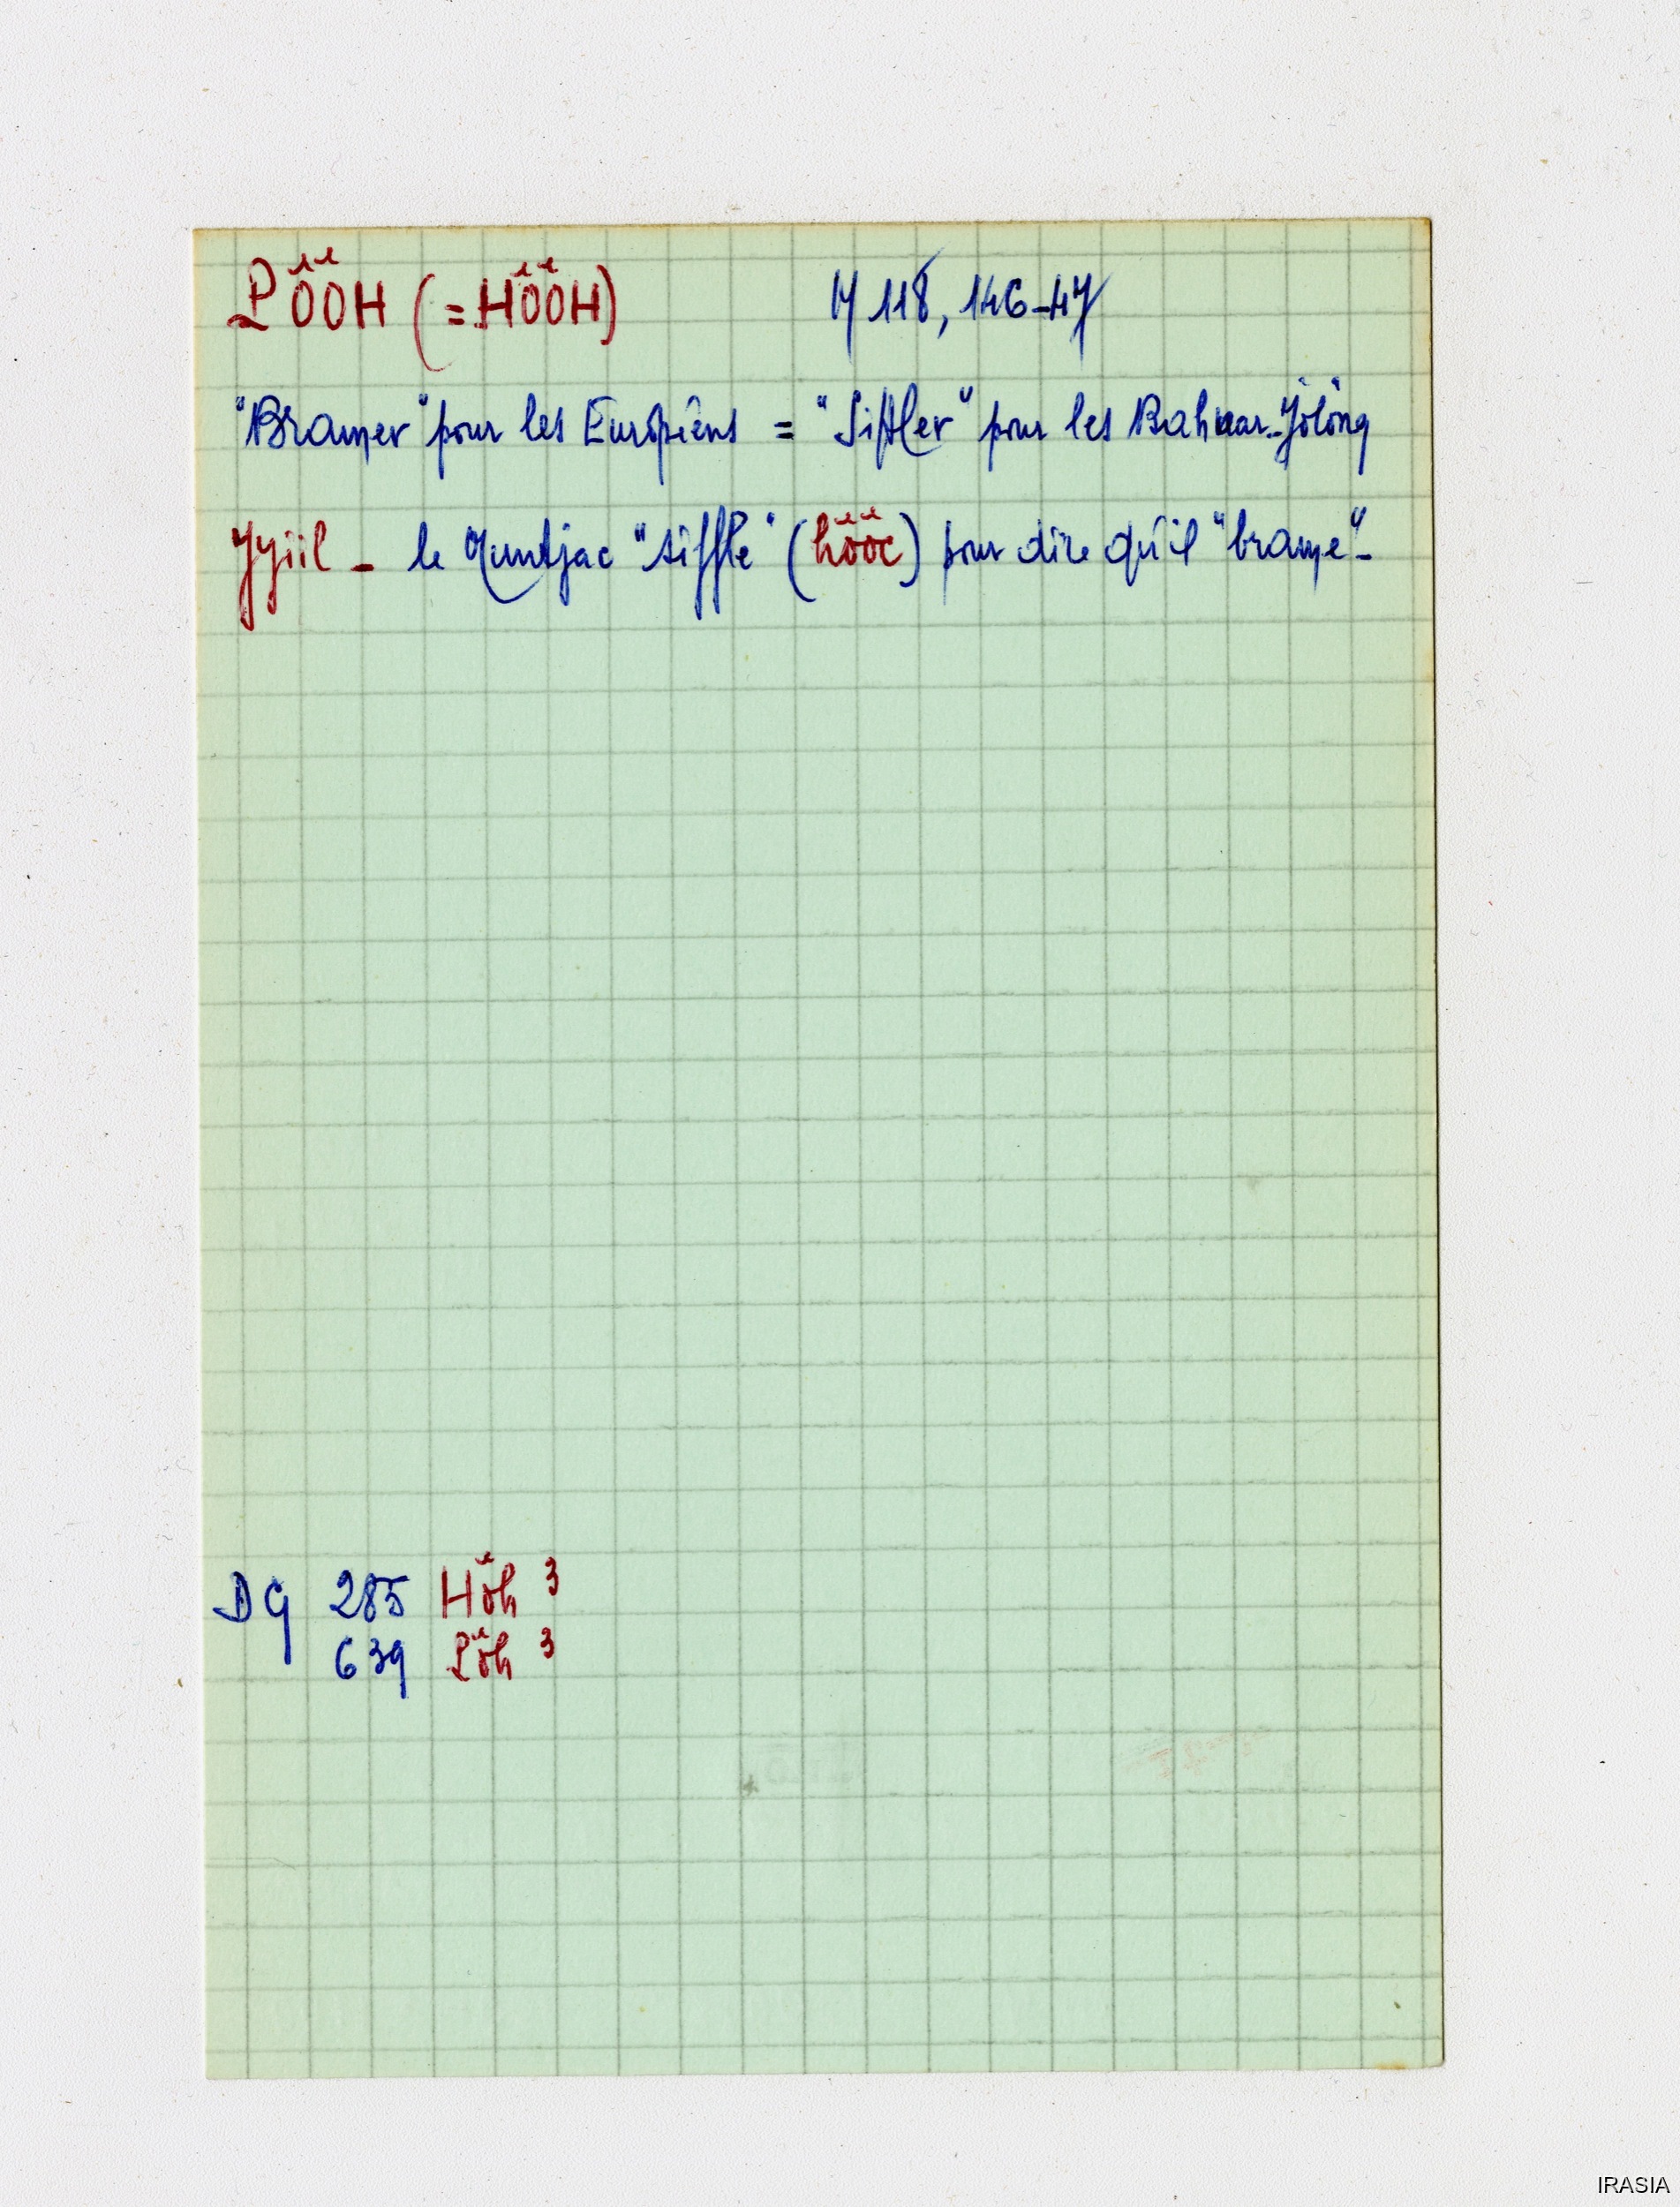 LÖÖH (=HÖÖH) M 118, 146-47
"Bramer" pour les Européens = "Siffler" pour les Bahnar-Jölöng
le Muntjac "siffle" (hööc) pour dire qu'il "brame"-
DG 285 Höh 3
639 Löh 3
IRASIA